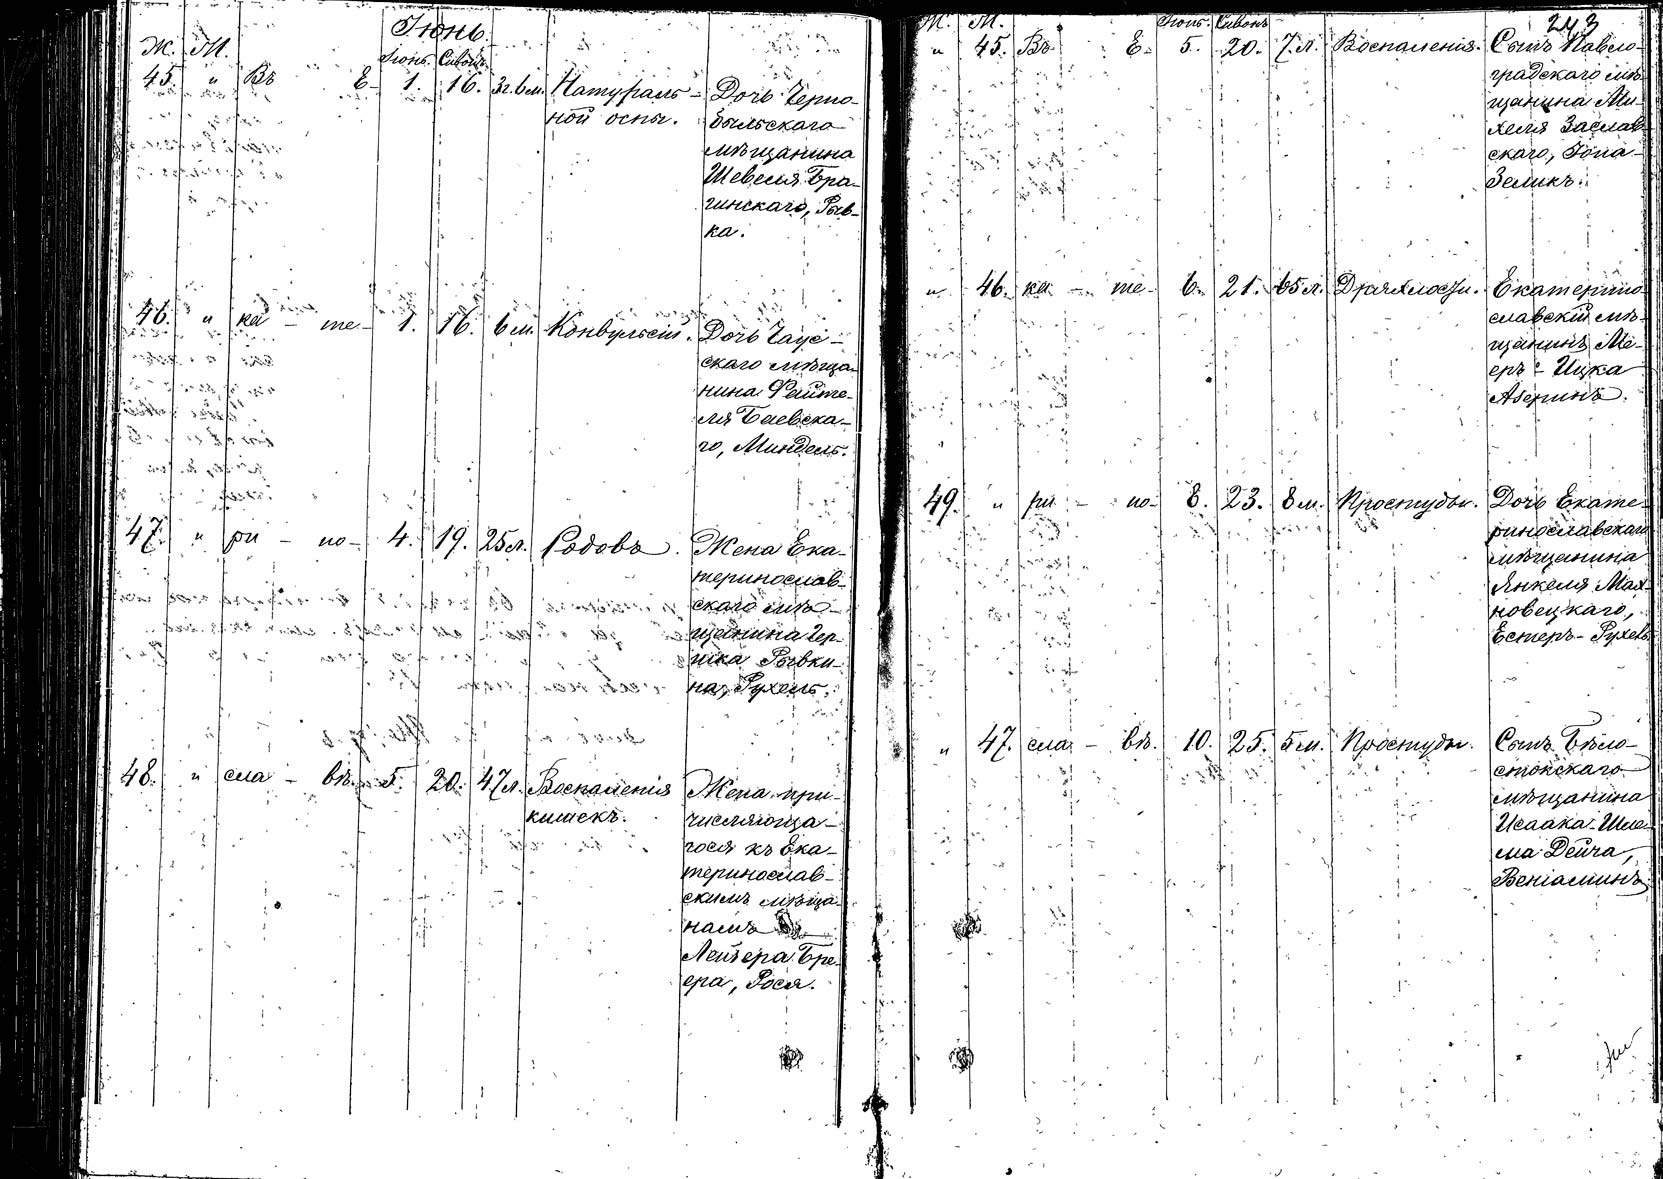 Іюнь.
Ж. М. Іюнь. Сивонъ.
45. " Въ Е- 1. 16. 3г.6м. Натураль- Дочь Черно-
ной оспы. быльскаго
мѣщанина
Шевеля Бра-
гинскаго, Рыв-
ка.
46. " ка - те- 1. 16. 6 м. Конвульсіи. Дочь Чаус-
скаго мѣща-
нина Файте-
ля Баевска-
го, Миндель.
47. " ри - но- 4. 19. 25 л. Родовъ. Жена Ека-
теринослав-
скаго мѣ-
щанина Гер-
шка Рывки-
на, Рухель.
48. " сла - вѣ. 5. 20. 47 л. Воспаленія Жена при-
кишекъ. числяюща-
гося къ Ека-
теринослав-
скимъ мѣща-
намъ
Лейзера Бре-
ера, Рося.
243
Ж. М. Іюнь. Сивонъ
" 45. Въ Е- 5. 20. 7 л. Воспаленія. Сынъ Павло-
градскаго мѣ-
щанина Ми-
хеля Заслав-
скаго, Іона-
Зеликъ.
" 46. ка - те- 6. 21. 65 л. Дряхлости. Екатерино-
славскій мѣ-
щанинъ Ме-
еръ-Ицка
Азеринъ.
49. " ри - но- 8. 23. 8 м. Простуды. Дочь Екате-
ринославскаго
мѣщанина
Янкеля Мах-
новецкаго,
Естеръ-Рухель
" 47. сла - вѣ. 10. 25. 5 м. Простуды. Сынъ Бѣло-
стокскаго
мѣщанина
Исаака-Шле-
ма Дейча,
Веніаминъ.